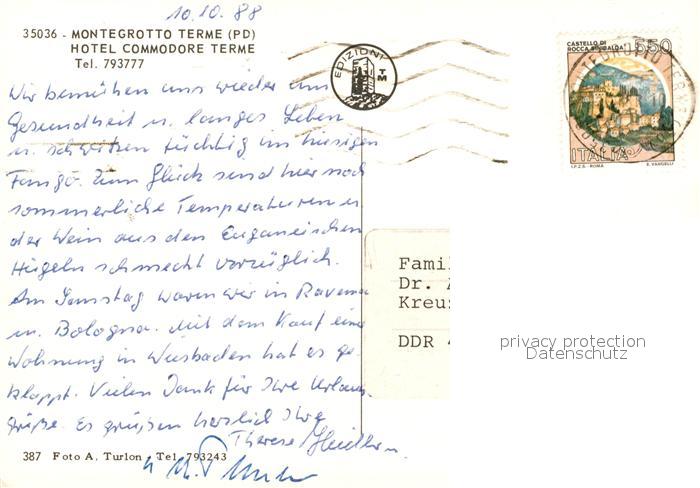 10.10.88
35036 - MONTEGROTTO TERME (PD)
HOTEL COMMODORE TERME
Tel. 793777
EDIZIONI
TM
CASTELLO DI
ROCCA SINIBALDA
550
ITALIA
I.P.Z.S. - ROMA
E. VANGELLI
Wir bemühen uns wieder um
Gesundheit u. langes Leben
u. schwitzen tüchtig im hiesigen
Fango. Zum Glück sind hier noch
sommerliche Temperaturen u.
der Wein aus den Euganeischen
Hügeln schmeckt vorzüglich.
Am Samstag waren wir in Ravenna
u. Bologna. Mit dem Kauf einer
Wohnung in Wiesbaden hat es ge-
klappt. Vielen Dank für Ihre Urlaubs-
grüße. Es grüßen herzlich Ihre
Therese
Famil
Dr. A
Kreu
DDR 4
privacy protection
Datenschutz
387 Foto A. Turlon - Tel. 793243